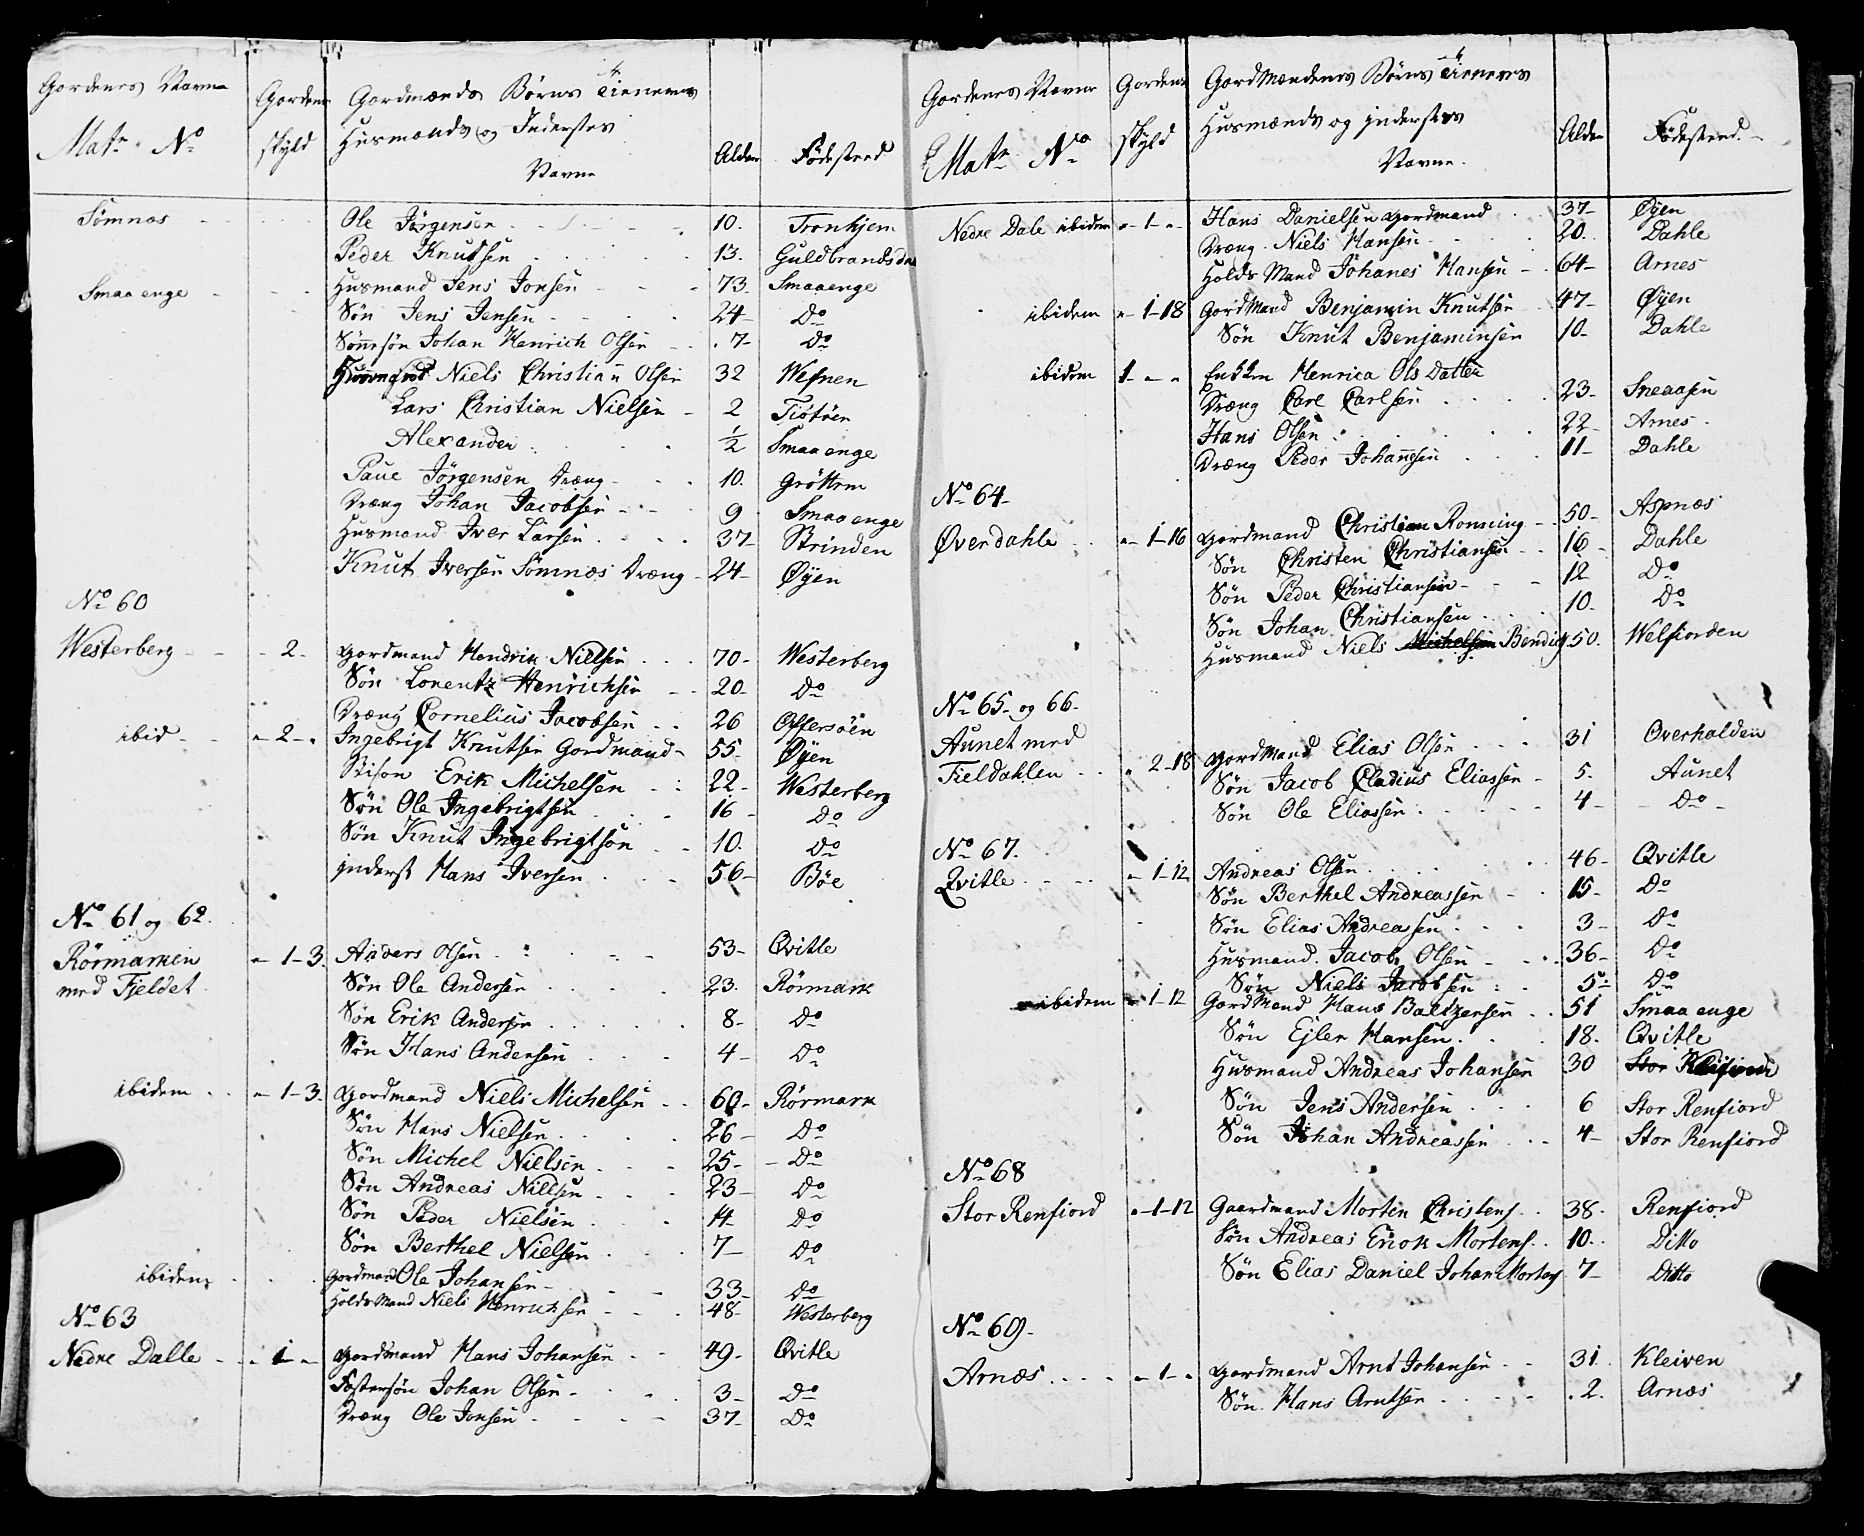 Gordenes Navne
Matr. No
Gordens skyld
Gordmænds Børns Tieneres
Husmænds og Indersters
Navne
Alder
Fødestæd
Sømnæs Ole Jørgensen 10. Tronhjem
Peder Knudsen 13. Guldbrandsdal
Smaaenge Husmand Jens Jonsen 73 Smaaenge
Søn Jens Jensen 24 Do
Sønnesøn Johan Henrich Olsen 7 Do
Niels Christian Olsen 32 Wefsen
Lars Christian Nielsen 2 Tiøtøen
Alexander ½ Smaaenge
Paue Jørgensen Dræng 10. Grøttem
Dræng Johan Jacobsen 9 Smaaenge
Husmand Iver Larsen 37 Strinden
Knut Iversen Sømnæs Dræng 24 Øyen
No 60
Westerberg 2. Gordmand Hendrik Nielsen 70 Westerberg
Søn Lorentz Henrichsen 20 Do
Dræng Cornelius Jacobsen 26 Offersøen
ibid 2 Ingebrigt Knutsen Gordmand 55. Øyen
Stison Erik Michelsen 22 Westerberg
Søn Ole Ingebrigtsen 16 Do
Søn Knut Ingebrigtsøn 10. Do
Inderst Hans Iversen 56 Bøe
No 61 og 62.
Rörmarken 1-3. Anders Olsen 53 Qvitle
med Fjeldet Søn Ole Andersen 23. Rörmark
Søn Erik Andersen 8 Do
Søn Hans Andersen 4 Do
ibidem 1-3. Gordmand Niels Michelsen 60 Rørmark
Søn Hans Nielsen 26 Do
Søn Michel Nielsen 25 Do
Søn Andreas Nielsen 23 Do
Søn Peder Nielsen Do
Søn Berthel Nielsen 7 Do
ibidem Gordmand Ole Johansen 33 Do
Holds Mand Niels Henrichsen 48 Westerberg
No 63
Nedre Dalle 1 Gordmand Hans Johansen 49 Qvitle
Fostersøn Johan Olsen 3 Do
Dræng Ole Jonsen 37 Do
Gordenes Navne
Matr. No
Gordens skyld
Gordmændenes Børns Tieneres
Husmænds og Indersters
Navne
Alder
Fødestæd
Nedre Dale ibidem 1 Hans Danielsen Gordmand 37 Øyen
Dræng Niels Hansen 20. Dahle
Holds Mand Johanes Hansen 64 Arnes
ibidem 1-18 Gordmand Benjamin Knutsen 47 Øyen
Søn Knut Benjaminsen 10 Dahle
ibidem 1 Enken Henrica Ols Datter
Dræng Carl Carlsen 23 Sneaasen
Hans Olsen 22 Arnes
Dræng Peder Johannsen 11 Dahle
No 64
Øver dahle 1-16 Gordmand Christian Ronning 50 Aspnæs
Søn Christen Christiansen 16 Dahle
Søn Peder Christiansen 12 Do
Søn Johan Christiansen 10. Do
Husmand Niels Michelsen Bendig 50. Welfiorden
No 65 og 66
Aunet med
Fieldahlen 2-18 Gordmand Elias Olsen 31 Overhalden
Søn Jacob Cladius Eliassen 5. Aunet
Søn Ole Eliassen 4 Do
No 67.
Qvitle 1-12 Andreas Olsen 46 Qvitle
Søn Berthel Andreassen 15 Do
Søn Elias Andreasen 3 Do
Husmand Jacob Olsen 36 Do
Søn Niels Jacobsen 5 Do
ibidem 1-12 Gordmand Hans Baltzersen 51 Smaa enge
Søn Ejler Hansen 18. Qvitle
Husmand Andreas Johansen 30 Stor
Søn Jens Andersen 6 Stor Renfiord
Søn Johan Andreassen 4 Stor Renfiord
No 68
Stor Renfiord 1-12 Gaardmand Morten Christens. 38 Renfiord
Søn Andreas Erick Mortens. 10. Ditto
Søn Elias Daniel Johan Mortens 7 Ditto
No 69
Arnæs 1 Gordmand Arnt Johansen 31 Kleiven
Søn Hans Arntsen 2. Arnæs